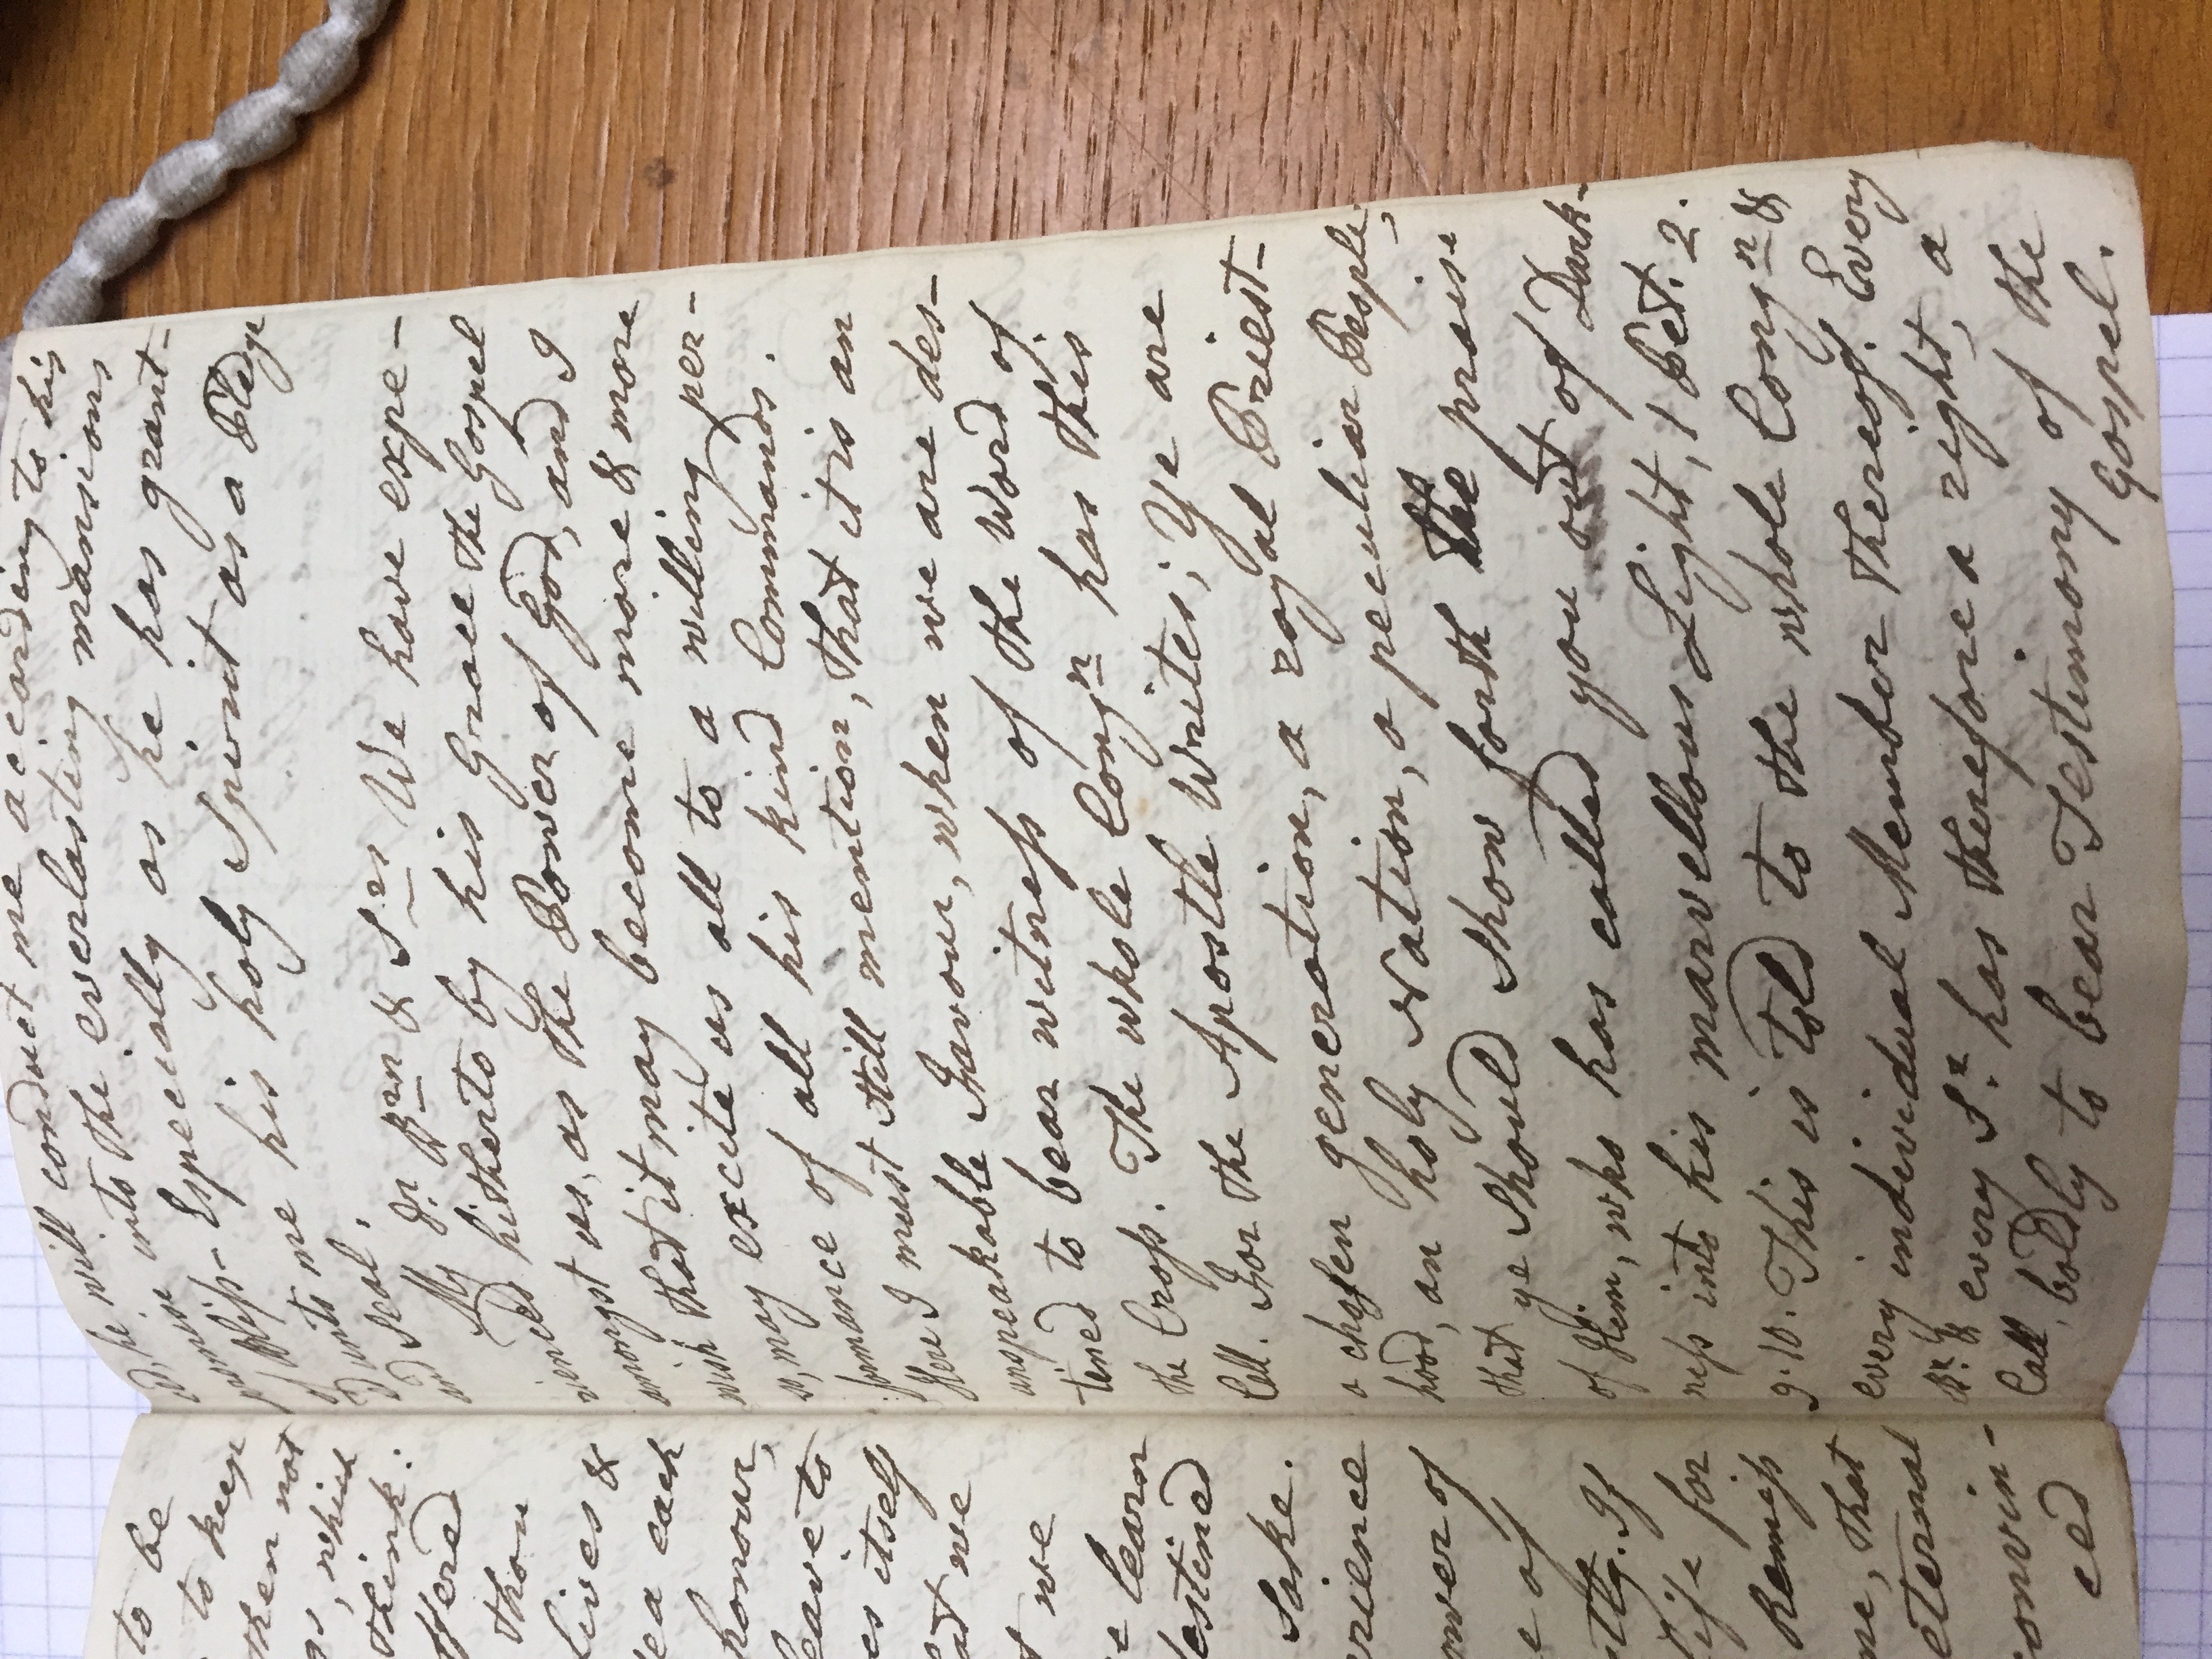 to be
to keep
then not
which
think:
ffered
thou
lives &
ea each
honour,
leave to
es itself
at we
we
learn
destined
Sake.
rience
ower of
e of
stly. If
life for
Remiss
me, that
eternal
convin-
ced
ced, he will conduct me according to his
promise into the everlasting mansions
of Bliss - Especially as he has grant-
d unto me his holy Spirit as a Pledge
and Seal.
My Dr. Brn & Srs We have expe-
rienced hitherto by his Grace the Gospel
amongst us, as the Power of God, and I
wish that it may become more & more
so, may excite us all to a willing per-
formance of all his kind Commands.
Here I must still mention, that it is an
unspeakable Favour, when we are des-
tined to bear witness of the Word of
the Cross. The whole Congn has this
Call. For the Apostle Writes; Ye are
a chosen generation, a royal Priest-
hood, an holy Nation, a peculiar People;
that ye should show forth the praise
of Him, who has called you out of Dark-
ness into his marvellous Light, 1 Pet. 2.
9.10. This is told to the whole Congn &
every individual Member thereof. Every
Br. & every Sr. has therefore a right, a
Call, boldly to bear Testimony of the
Gospel.